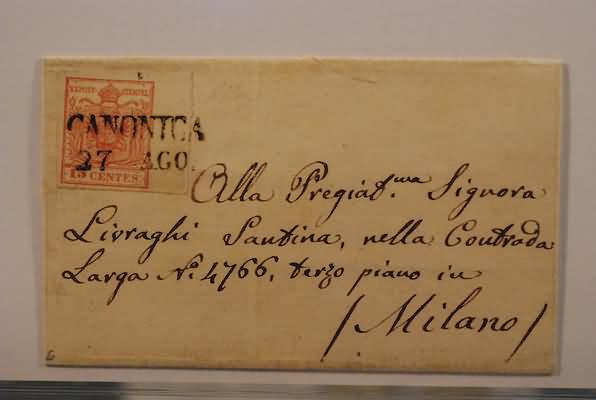 CANONICA
27 AGO.
15 CENTES.
Alla Pregiat.ma Signora
Livraghi Santina, nella Contrada
Larga No. 4766, terzo piano in
/Milano/